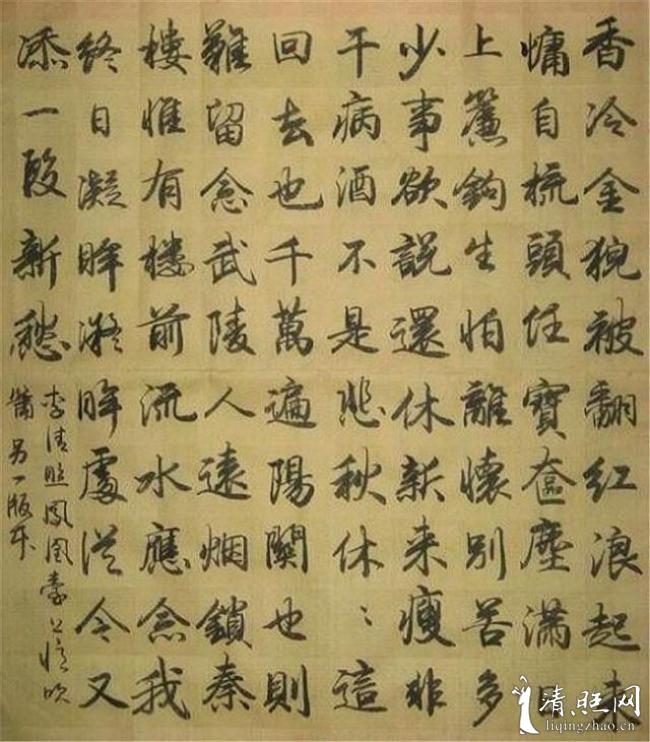 香冷金猊被翻红浪起来
慵自梳頭任寶奩塵滿日
上簾鉤生怕離懷別苦多
少事欲說還休新来瘦非
干病酒不是悲秋休〻這
回去也千萬遍陽關也則
難留念武陵人遠烟鎖秦
樓惟有樓前流水應念我
終日凝眸凝眸處從今又
添一段新愁
李清照鳳凰臺上憶吹
簫另一版本
清旺网
liqingzhao.cn